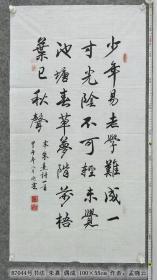 少年易老學難成一
寸光陰不可輕未覺
池塘春草夢階前梧
葉已秋聲
宋朱熹詩
甲午年
87044号书法 朱熹 偶成 100×55cm 作者：孟晓山